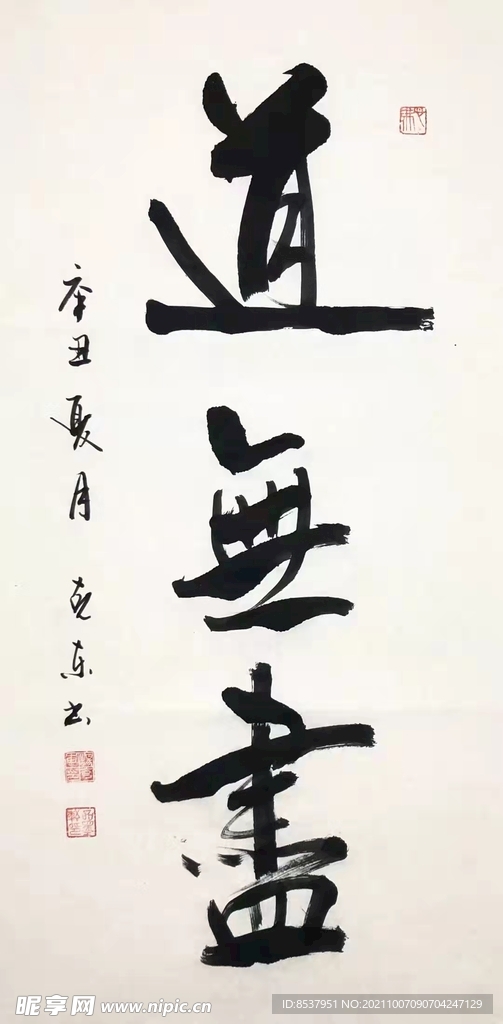 道無盡
辛丑夏月 克东书
昵享网 www.nipic.cn
ID:8537951 NO:20211007090704247129